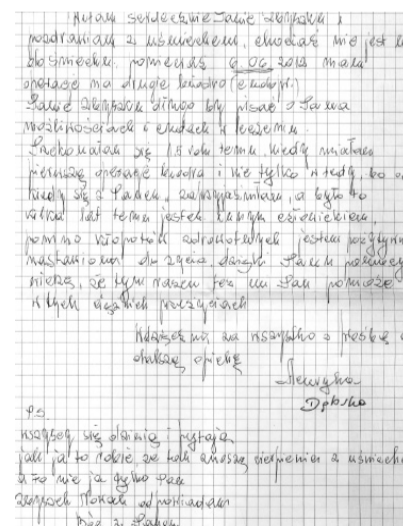 Witam serdecznie Panie Zbyszku i
pozdrawiam z uśmiechem, chociaż nie jest mi
do śmiechu, ponieważ 6.06 2012 mam
operację na drugie biodro (endopr.)
Panie Zbyszku długo by pisać o Pana
możliwościach i cudach w leczeniu.
Przekonałam się 1,5 roku temu kiedy miałam
pierwszą operację biodra i nie tylko wtedy, bo od
kiedy się z Panem zaprzyjaźniłam, a było to
kilka lat temu jestem innym człowiekiem.
pomimo kłopotów zdrowotnych jestem pozytywnie
nastawiona do życia, dzięki Pana pomocy
wierzę, że tym razem też mi Pan pomoże
w tych ciężkich przeżyciach
Wdzięczna za wszystko z prośbą o
dalszą opiekę
Henryka
Dębska
PS.
wszyscy się dziwią i pytają
jak ja to robię, że tak znoszę cierpienia z uśmiechem
a to nie ja tylko Pan
Zbyszek Nowak odpowiadam
Bóg z Panem